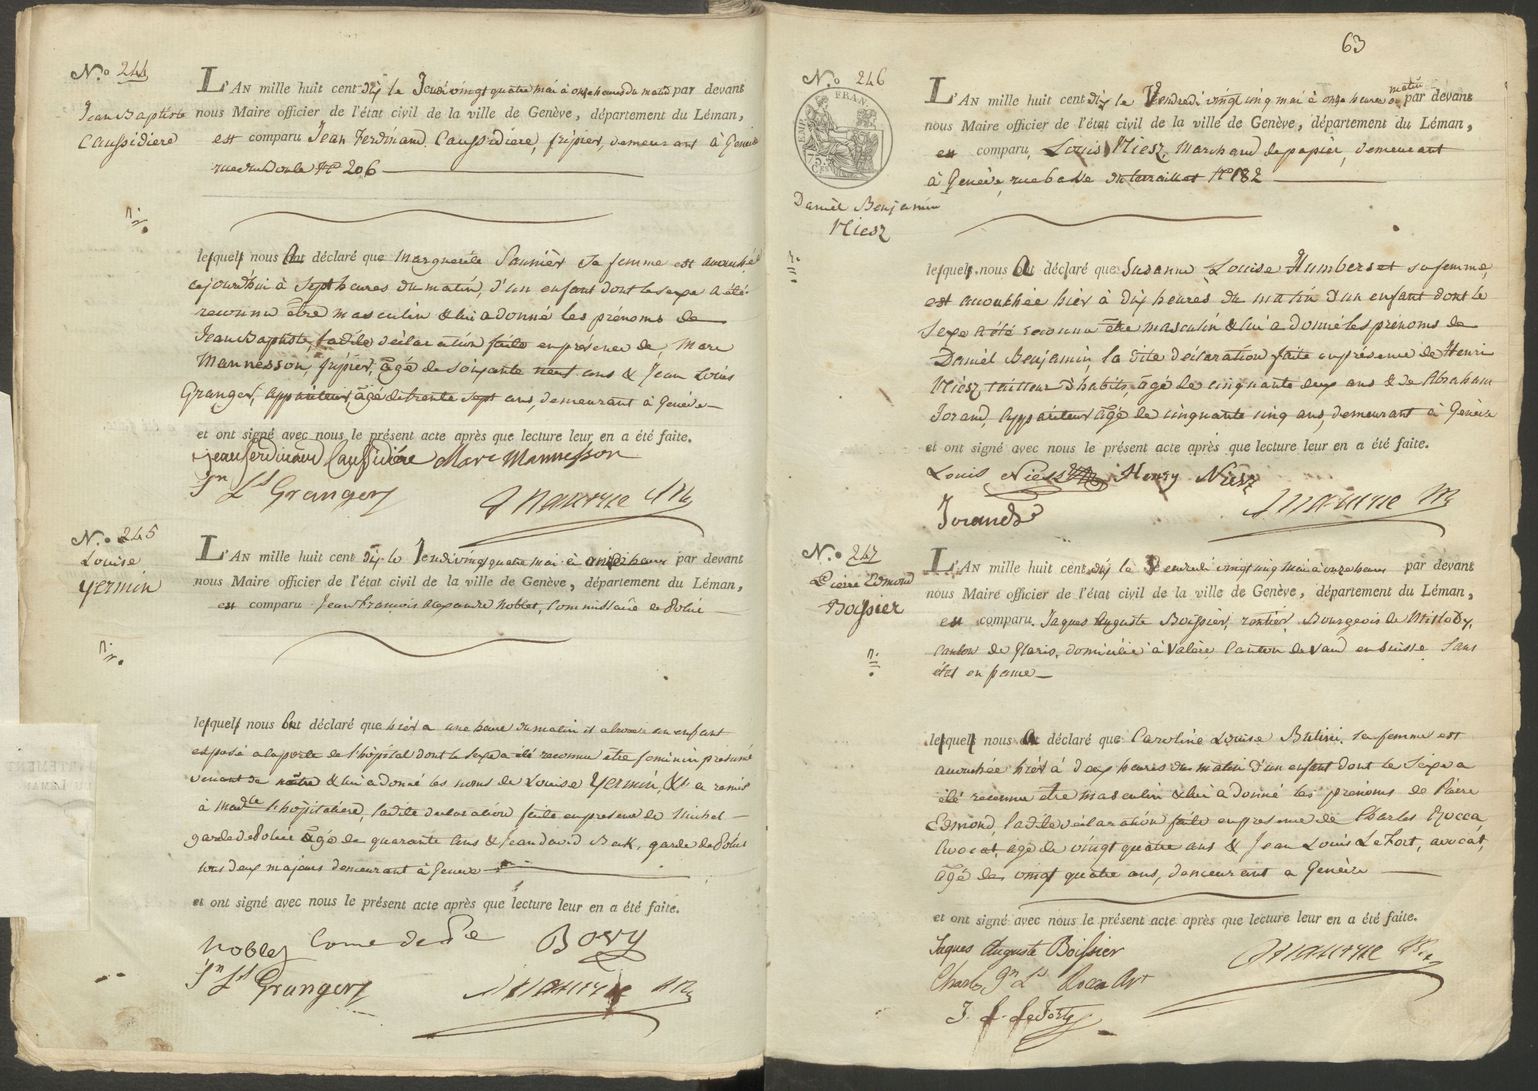 N.o 244
Jean Baptiste
Caussidière
L'An mille huit cent dix le Jeudi vingt quatre mai à onze heures du matin par devant
nous Maire officier de l'état civil de la ville de Genève, département du Léman,
est comparu Jean Ferdinand Caussidière, fripier, demeurant à Genève
rue du Boule No 206
lesquels nous ont déclaré que Marguerite Saunièr sa femme est accouchée
cejourd'hui à Sept heures du matin, d'un enfant dont le sexe a été
reconnu être masculin & lui a donné les prénoms de
Jean Baptiste, ladite déclaration faite en présence de Marc
Mannesson, fripier, âgé de soixante neuf ans & Jean Louis
Granger, appariteur, âgé de trente sept ans, demeurant à Genève
et ont signé avec nous le présent acte après que lecture leur en a été faite.
Jean Ferdinand Caussidière Marc Mannesson
Jn Ls Granger
Maurice
N.o 245
Louise
Yermin
L'An mille huit cent dix le Jeudi vingt quatre mai à onze heures par devant
nous Maire officier de l'état civil de la ville de Genève, département du Léman,
est comparu Jean François Alexandre Noblet, Commissaire de Police
lesquels nous ont déclaré que hier a une heure du matin il a trouvé un enfant
exposé a la porte de l'hôpital dont le sexe a été reconnu être féminin présumé
venant de naître & lui a donné les noms de Louise Yermin, & l'a remis
à Madlle l'hôpitalière, ladite déclaration faite en présence de Michel
garde de Police âgé de quarante ans & Jean David Beck, garde de Police
tous deux majeurs demeurant à Geneve
et ont signé avec nous le présent acte après que lecture leur en a été faite.
Noblet Comre de Pce Bovy
Jn Ls Granger
Maurice
63
N.o 246
EMP. FRANC.
75 CENTIMES
Daniel Benjamin
Niesz
L'An mille huit cent dix le Vendredi vingt cinq mai à onze heures du matin par devant
nous Maire officier de l'état civil de la ville de Genève, département du Léman,
est comparu, Louis Niesz, Marchand de papier, demeurant
à Genève, rue basse du terraillet No 182
lesquels nous ont déclaré que Susanne Louise Humbert sa femme,
est accouchée hier à dix heures du matin d'un enfant dont le
sexe a été reconnu être masculin & lui a donné les prénoms de
Daniel Benjamin, la dite déclaration faite en présence de Henri
Niesz tailleur d'habits, âgé de cinquante deux ans & de Abraham
Jorand, appariteur âgé de cinquante cinq ans, demeurant à Genève
et ont signé avec nous le présent acte après que lecture leur en a été faite.
Louis Niess Henry Niesz
Jorand
Maurice
N.o 247
Pierre Edmond
Boissier
L'An mille huit cent dix le Vendredi vingt cinq mai à onze heures par devant
nous Maire officier de l'état civil de la ville de Genève, département du Léman,
est comparu, Jaques Auguste Boissier, rentier, Bourgeois de
Canton de Glaris, domicilié à Valère Canton de Vaud en Suisse Sans
état en france
lesquels nous ont déclaré que Caroline Louise Butini sa femme est
accouchée hier à deux heures du matin d'un enfant dont le sexe a
été reconnu être masculin & lui a donné les prénoms de Pierre
Edmond, ladite déclaration faite en présence de Charles Rocca
Avocat, âgé de vingt quatre ans & Jean Louis Le Fort, avocat,
âgé de vingt quatre ans, demeurant a Genève
et ont signé avec nous le présent acte après que lecture leur en a été faite.
Jaques Auguste Boissier
Charles Jn Ls Rocca Avt
J. L. LeFort
Maurice